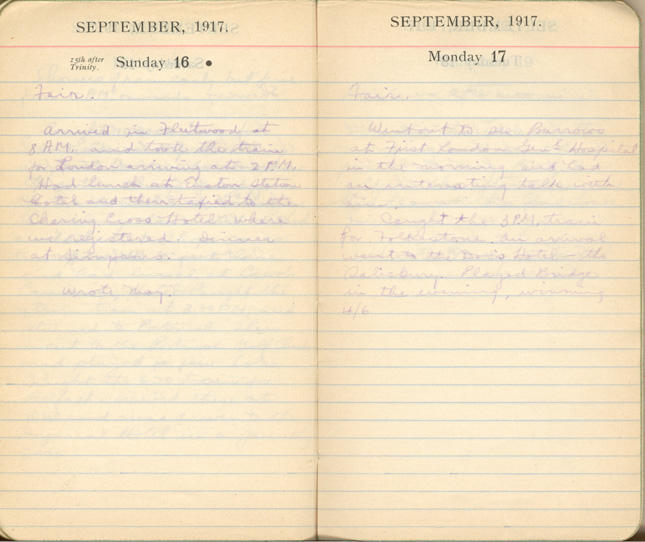 SEPTEMBER, 1917.
15th after
Trinity.
Sunday 16
Fair.
Arrived in Fleetwood at
8 A.M. and took the train
for London arriving at 2 P.M.
Had lunch at Euston Station
Hotel and then taxied to the
Charing Cross Hotel where
we registered. Dinner
at Simpson's.
Wrote May.
SEPTEMBER, 1917.
Monday 17
Fair.
Went out to see Burrows
at First London Gen'l Hospital
in the morning and had
an interesting talk with
him.
Caught the 3 P.M. train
for Folkestone. On arrival
went to the Hotel the
Salisbury. Played Bridge
in the evening, winning
4/6